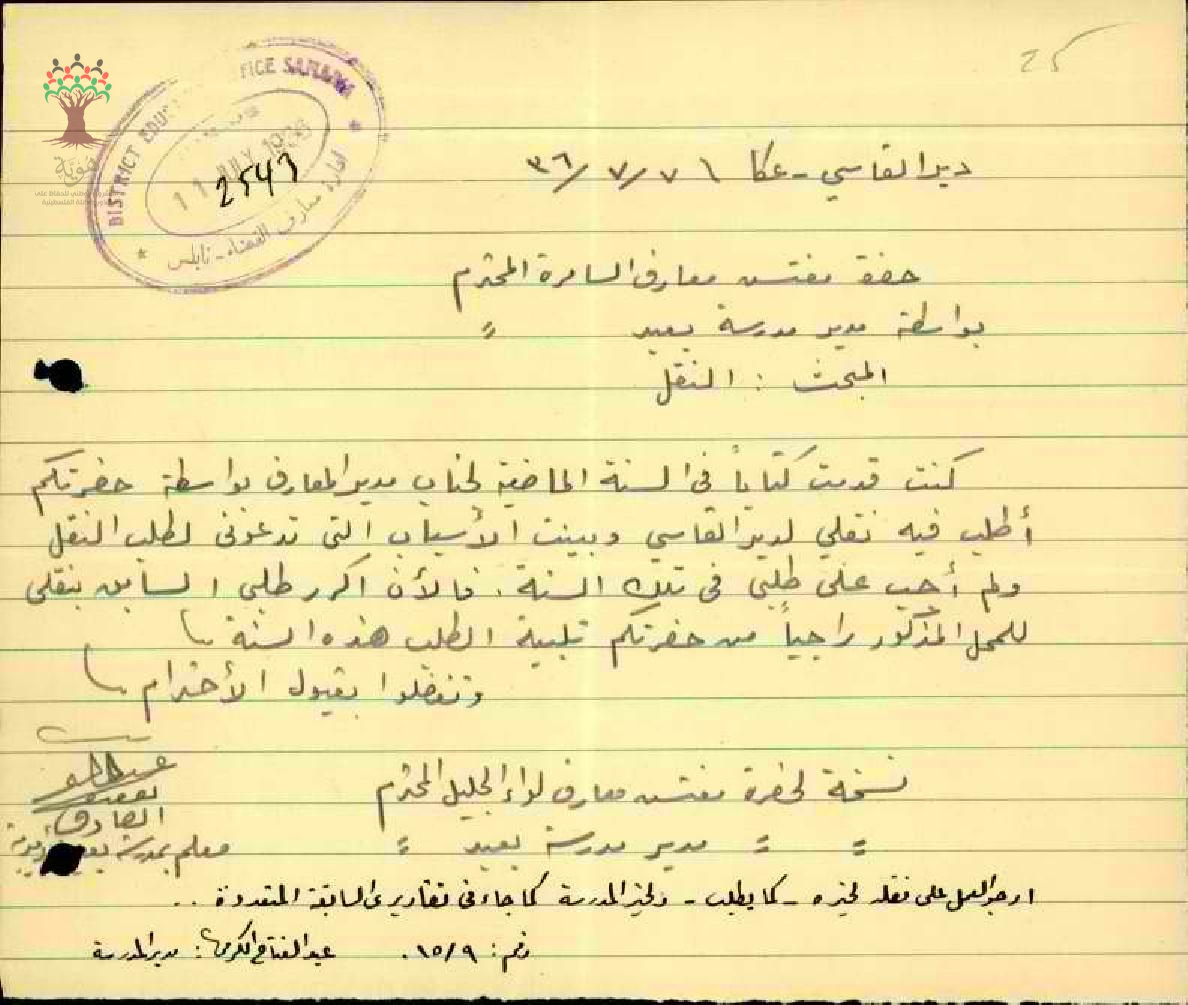 25
DISTRICT EDUC FICE SAMARIA
11 JULY 1936
2543
ادارة معارف القضاء - نابلس
هوية
ديرالقاسي - عكا ٣٦/٧/٧
حضرة مفتش معارف السامرة المحترم
بواسطة مدير مدرسة يعبد =
المبحث : النقل
كنت قدمت كتاباً في السنة الماضية لجناب مدير المعارف بواسطة حضرتكم
أطلب فيه نقلي لديرالقاسي وبينت الأسباب التي تدعوني لطلب النقل
ولم أجب على طلبي في تلك السنة. فالأن اكرر طلبي السابق بنقلي
للمحل المذكور راجياً من حضرتكم تلبية الطلب هذه السنة
وتفضلوا بقبول الأحترام
نسخة لحضرة مفتش معارف لواء الجليل المحترم
= = مدير مدرسة يعبد =
الصادق
معلم بمدرسة يعبد
ارجو العمل على نقله لخيره - كما يطلب - ولخير المدرسة كما جاء في تقاريري السابقة المتعددة ..
رقم: ١٥/٩. عبدالفتاح الكرمي: مدير المدرسة